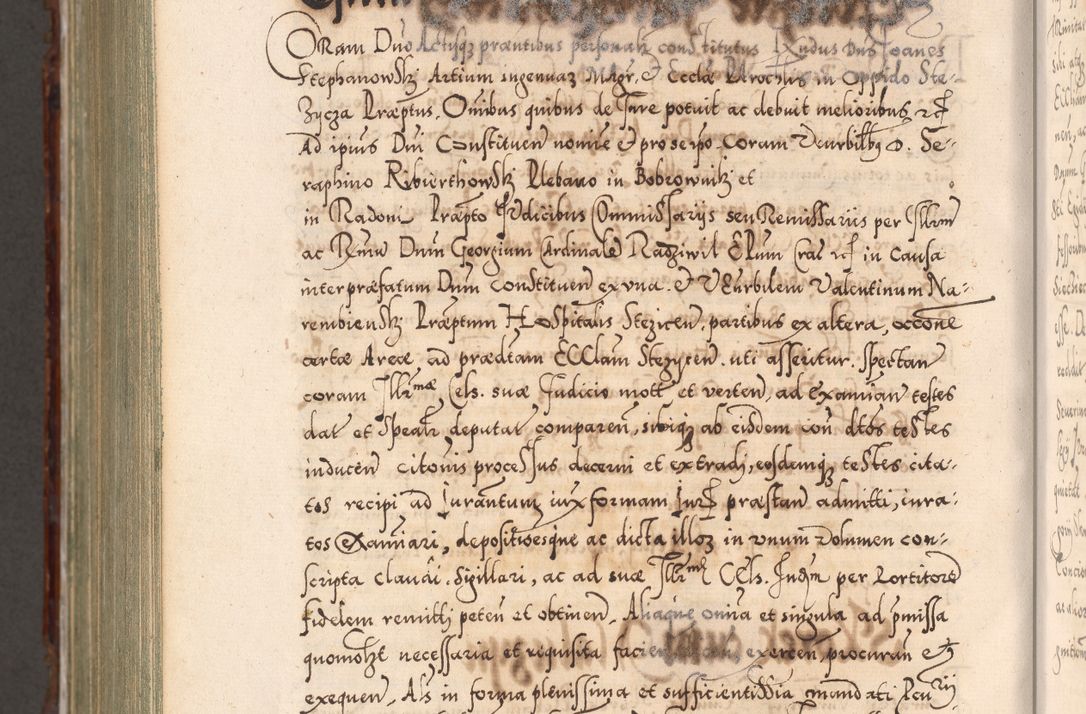 Coram Dno Actisqz præntibus personalr constitutus Rndus Dns Joanes
Stephanowskj Artium ingenuaz Magr, et Eccłæ Parochłis in Oppido Ste-
zycza Præptus, Omnibus quibus de Jure potuit ac debuit melioribus etc
Ad ipsius Dni Constituen nomine et pro se ipso, coram Venrbilibus D. Se-
raphino Rivierthowskj Plebano in Bobrownikj et
in Radoni Præpto Judicibus Commissarijs seu Remissariis per Illrm
ac Rmu Dnm Georgium Cardinale Radziwil Epum Crac etc in causa
inter præfatum Dnm Constituen ex una et VEnrbilem Valentinum Na-
rembienskj Præptum Hospitalis Stezicen, partibus ex altera, occone
certæ Areæ ad prædtam Ecclam Stezycen uti asseritur, spectan
coram Illrmæ Cels. suæ Judicio mott et verten, ad Examian testes
dat et Spealr deputat comparen, sibiqz ab eisdem con dtos testes
inducen citonis processus decerni et extradj, eosdemqz testes cita-
tos recipi ad Jurantum iux formam Juris præstan admitti, iura-
tos Examiari, depositioesque ac dicta illoz in unum Volumen con-
scripta claudi, Sigillari, ac ad suæ Illrmæ Cels. Judm per Portitore
fidelem remitti peten et obtinen, Aliaque omia et singula ad pmissa
quomołt necessaria et requisita facien, exercen, procuran et
exequen, Als in forma plenissima et sufficientissia mandati Pcurii